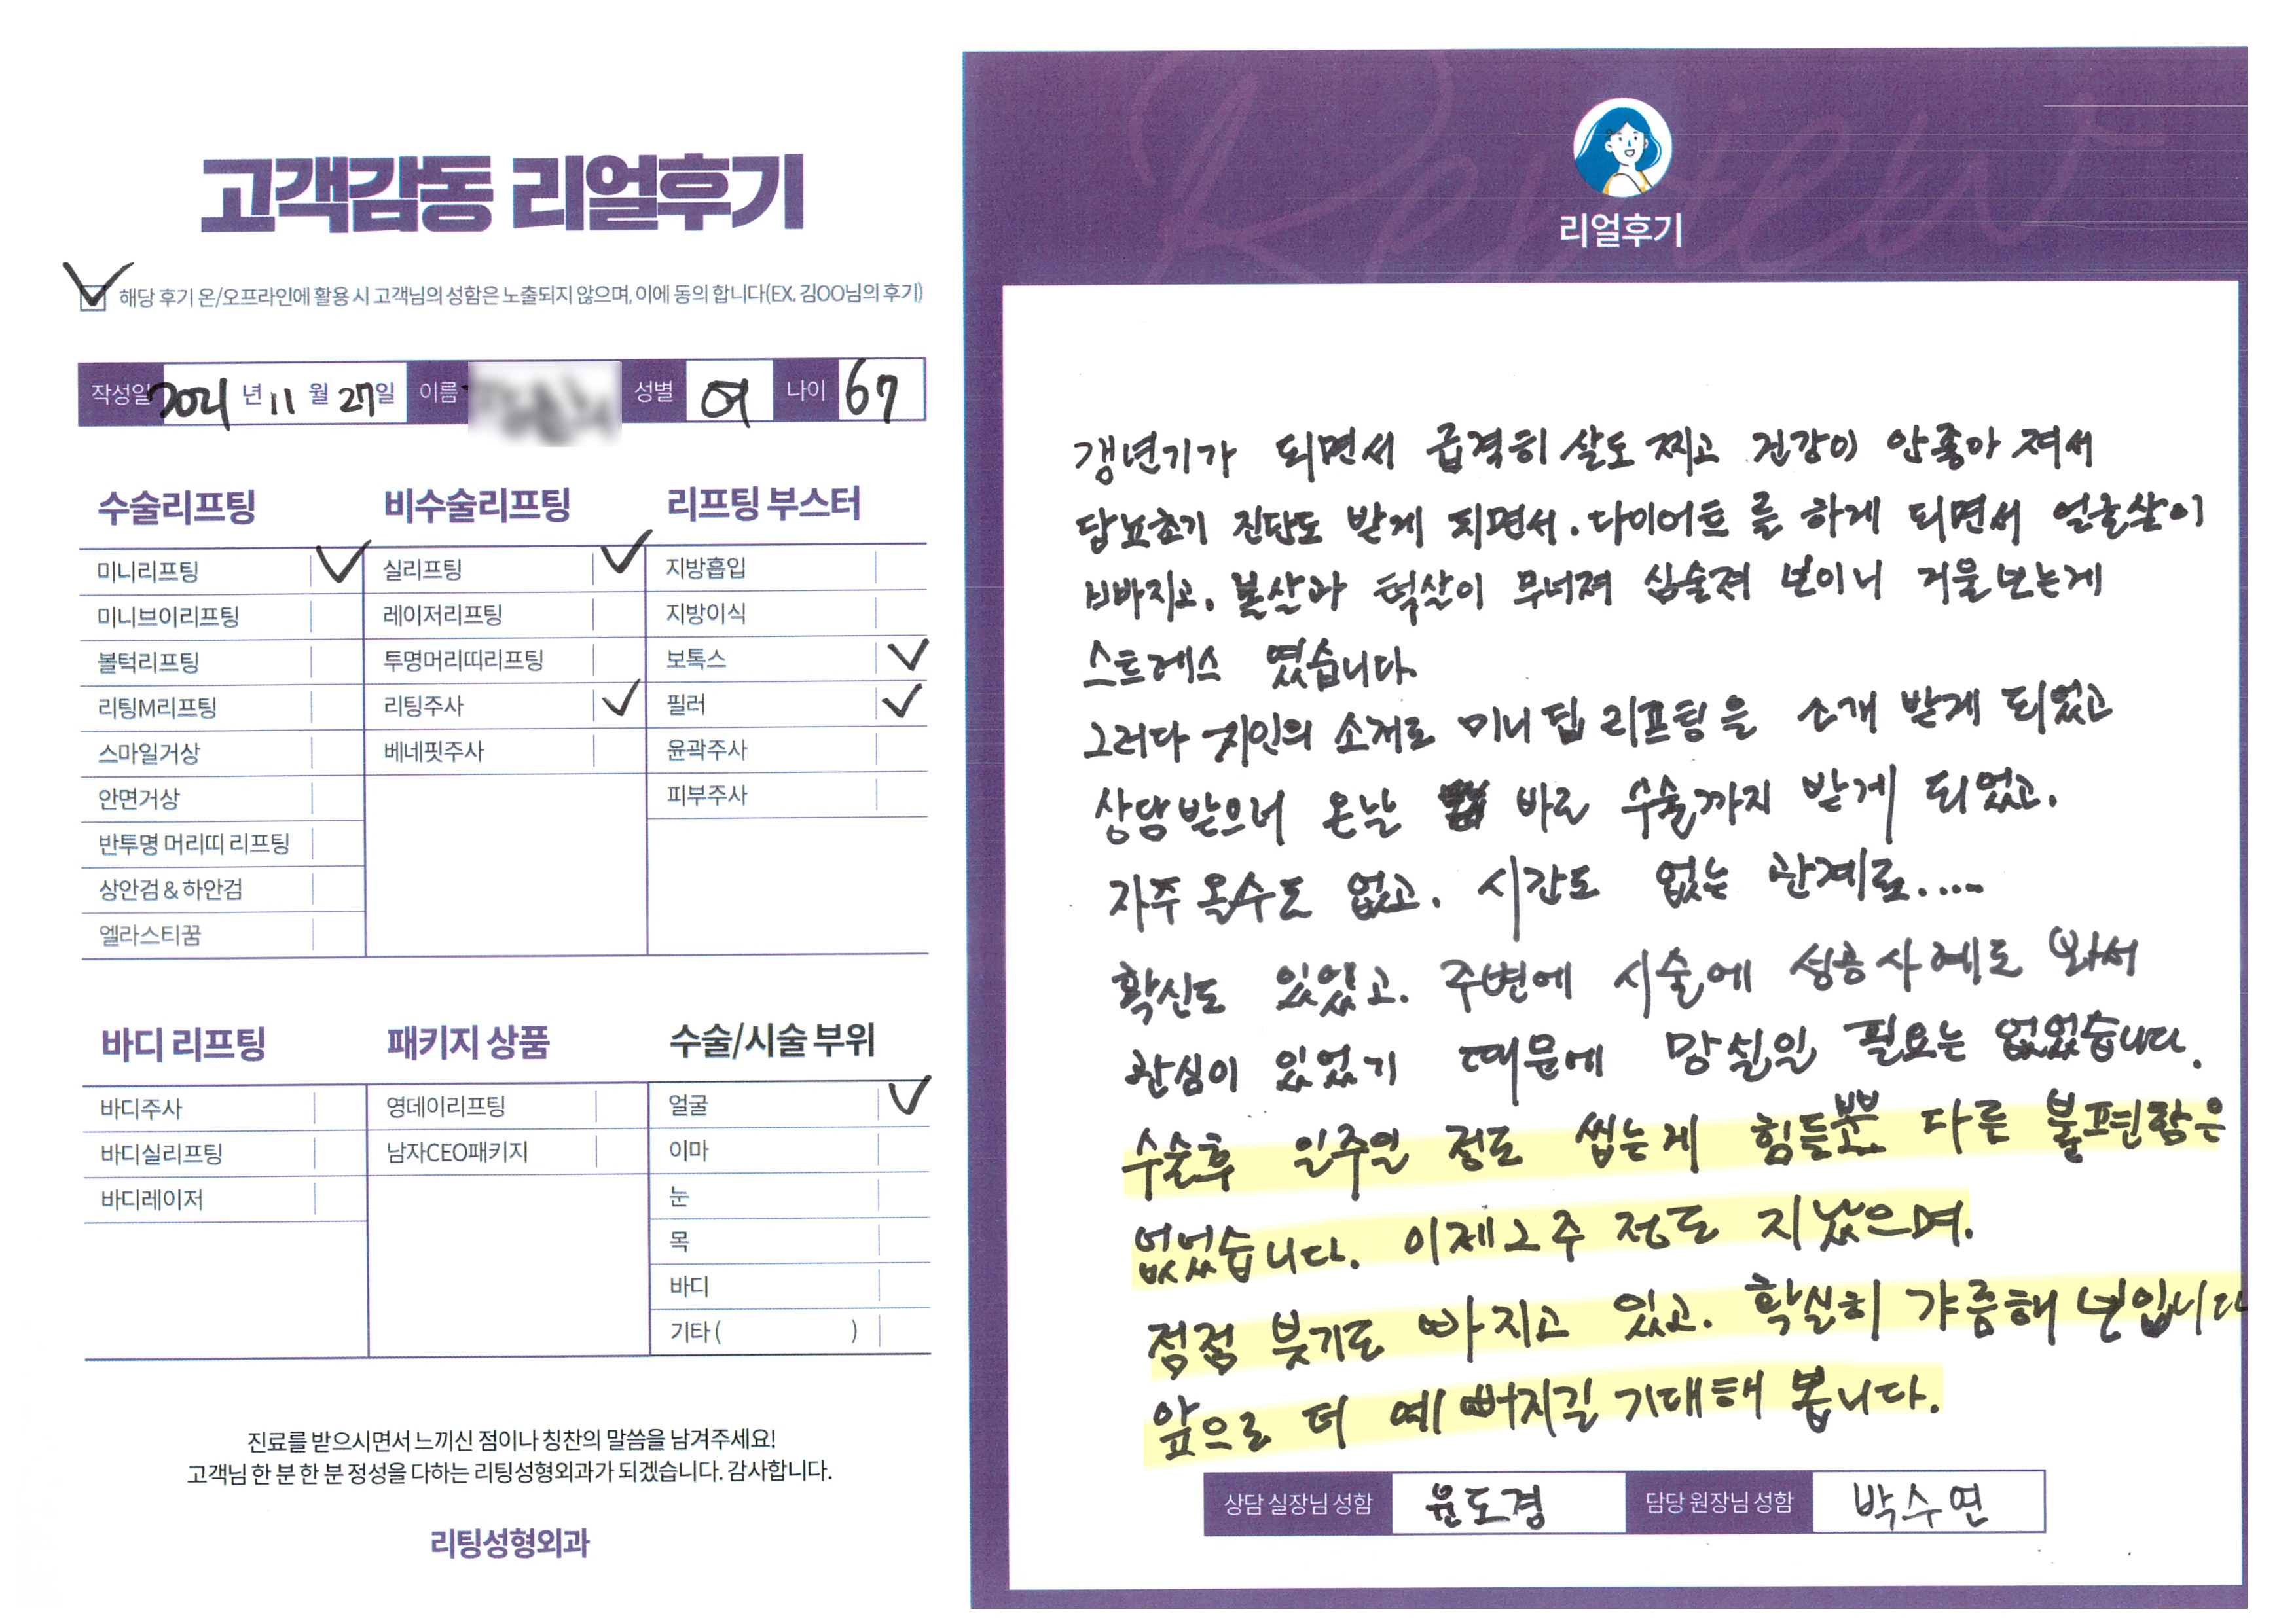 고객감동 리얼후기
해당 후기 온/오프라인에 활용 시 고객님의 성함은 노출되지 않으며, 이에 동의 합니다(EX. 김OO님의 후기)
작성일 2021 년 11 월 27일 이름 성별 여 나이 67
수술리프팅
미니리프팅
미니브이리프팅
볼턱리프팅
리팅M리프팅
스마일거상
안면거상
반투명 머리띠 리프팅
상안검 & 하안검
엘라스티꿈
비수술리프팅
실리프팅
레이저리프팅
투명머리띠리프팅
리팅주사
베네핏주사
리프팅 부스터
지방흡입
지방이식
보톡스
필러
윤곽주사
피부주사
바디 리프팅
바디주사
바디실리프팅
바디레이저
패키지 상품
영데이리프팅
남자CEO패키지
수술/시술 부위
얼굴
이마
눈
목
바디
기타 ( )
진료를 받으시면서 느끼신 점이나 칭찬의 말씀을 남겨주세요!
고객님 한 분 한 분 정성을 다하는 리팅성형외과가 되겠습니다. 감사합니다.
리팅성형외과
Review
리얼후기
갱년기가 되면서 급격히 살도 찌고 건강이 안좋아 져서
답뇨초기 진단도 받게 되면서. 다이어트를 하게 되면서 얼굴살이
빠지고. 볼살과 턱살이 무너져 심술져 보이니 거울보는게
스트레스 였습니다.
그러다 지인의 소개로 미니 딥 리프팅을 소개 받게 되었고
상담받으러 온날 바로 수술까지 받게 되었고.
자주 올수도 없고. 시간도 없는 관계로.....
확신도 있었고. 주변에 시술에 성공사례도 봐서
관심이 있었기 때문에 망실일 필요는 없었습니다.
수술후 일주일 정도 씹는게 힘들뿐 다른 불편함은
없었습니다. 이제 2주 정도 지났으며.
점점 붓기도 빠지고 있고. 확실히 갸름해 보입니다
앞으로 더 예뻐지길 기대해 봅니다.
상담 실장님 성함 윤도경 담당 원장님 성함 박수연